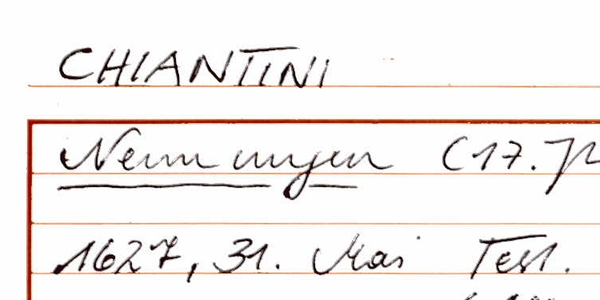 CHIANTINI
Nennungen (17. J
1627, 31. Mai Test.